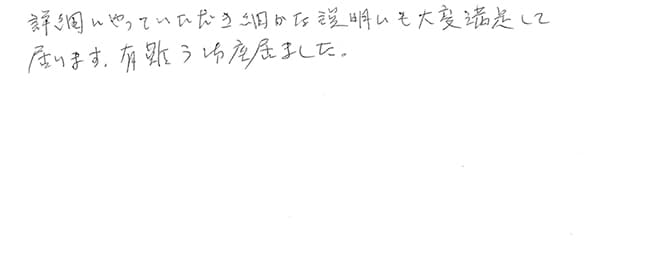 詳細にやっていただき細かな説明にも大変満足して
居ります。有難う御座居ました。